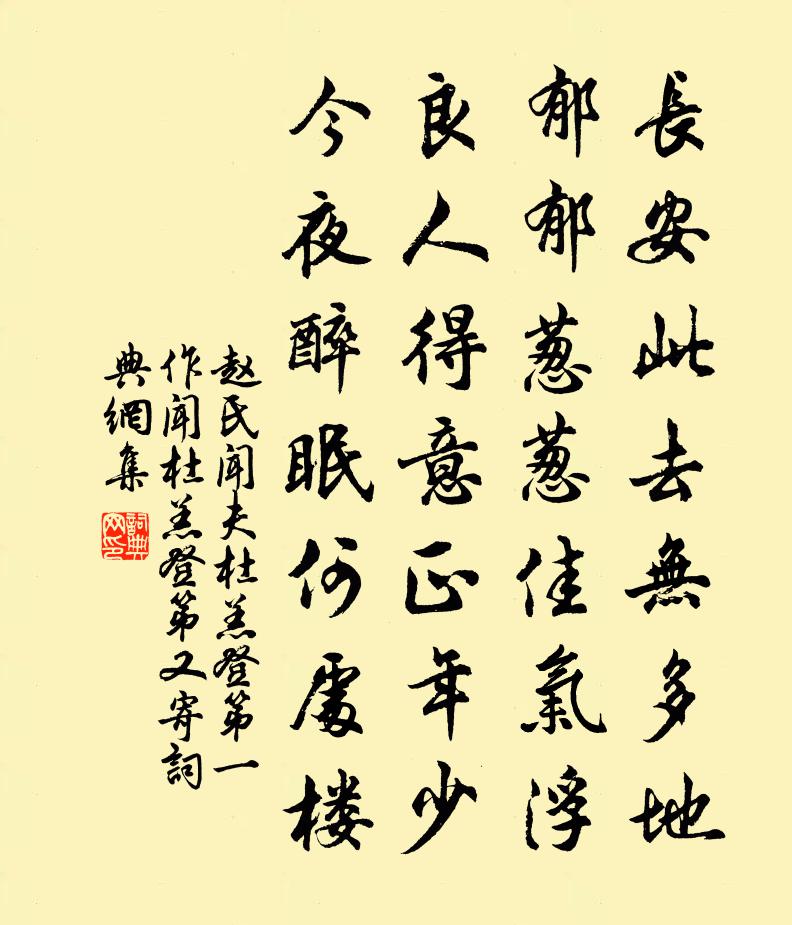 長安此去無多地
郁郁葱葱佳氣浮
良人得意正年少
今夜醉眠何處楼
赵氏闻夫杜羔登第一
作闻杜羔登第又寄詞
典網集
詞典
网印